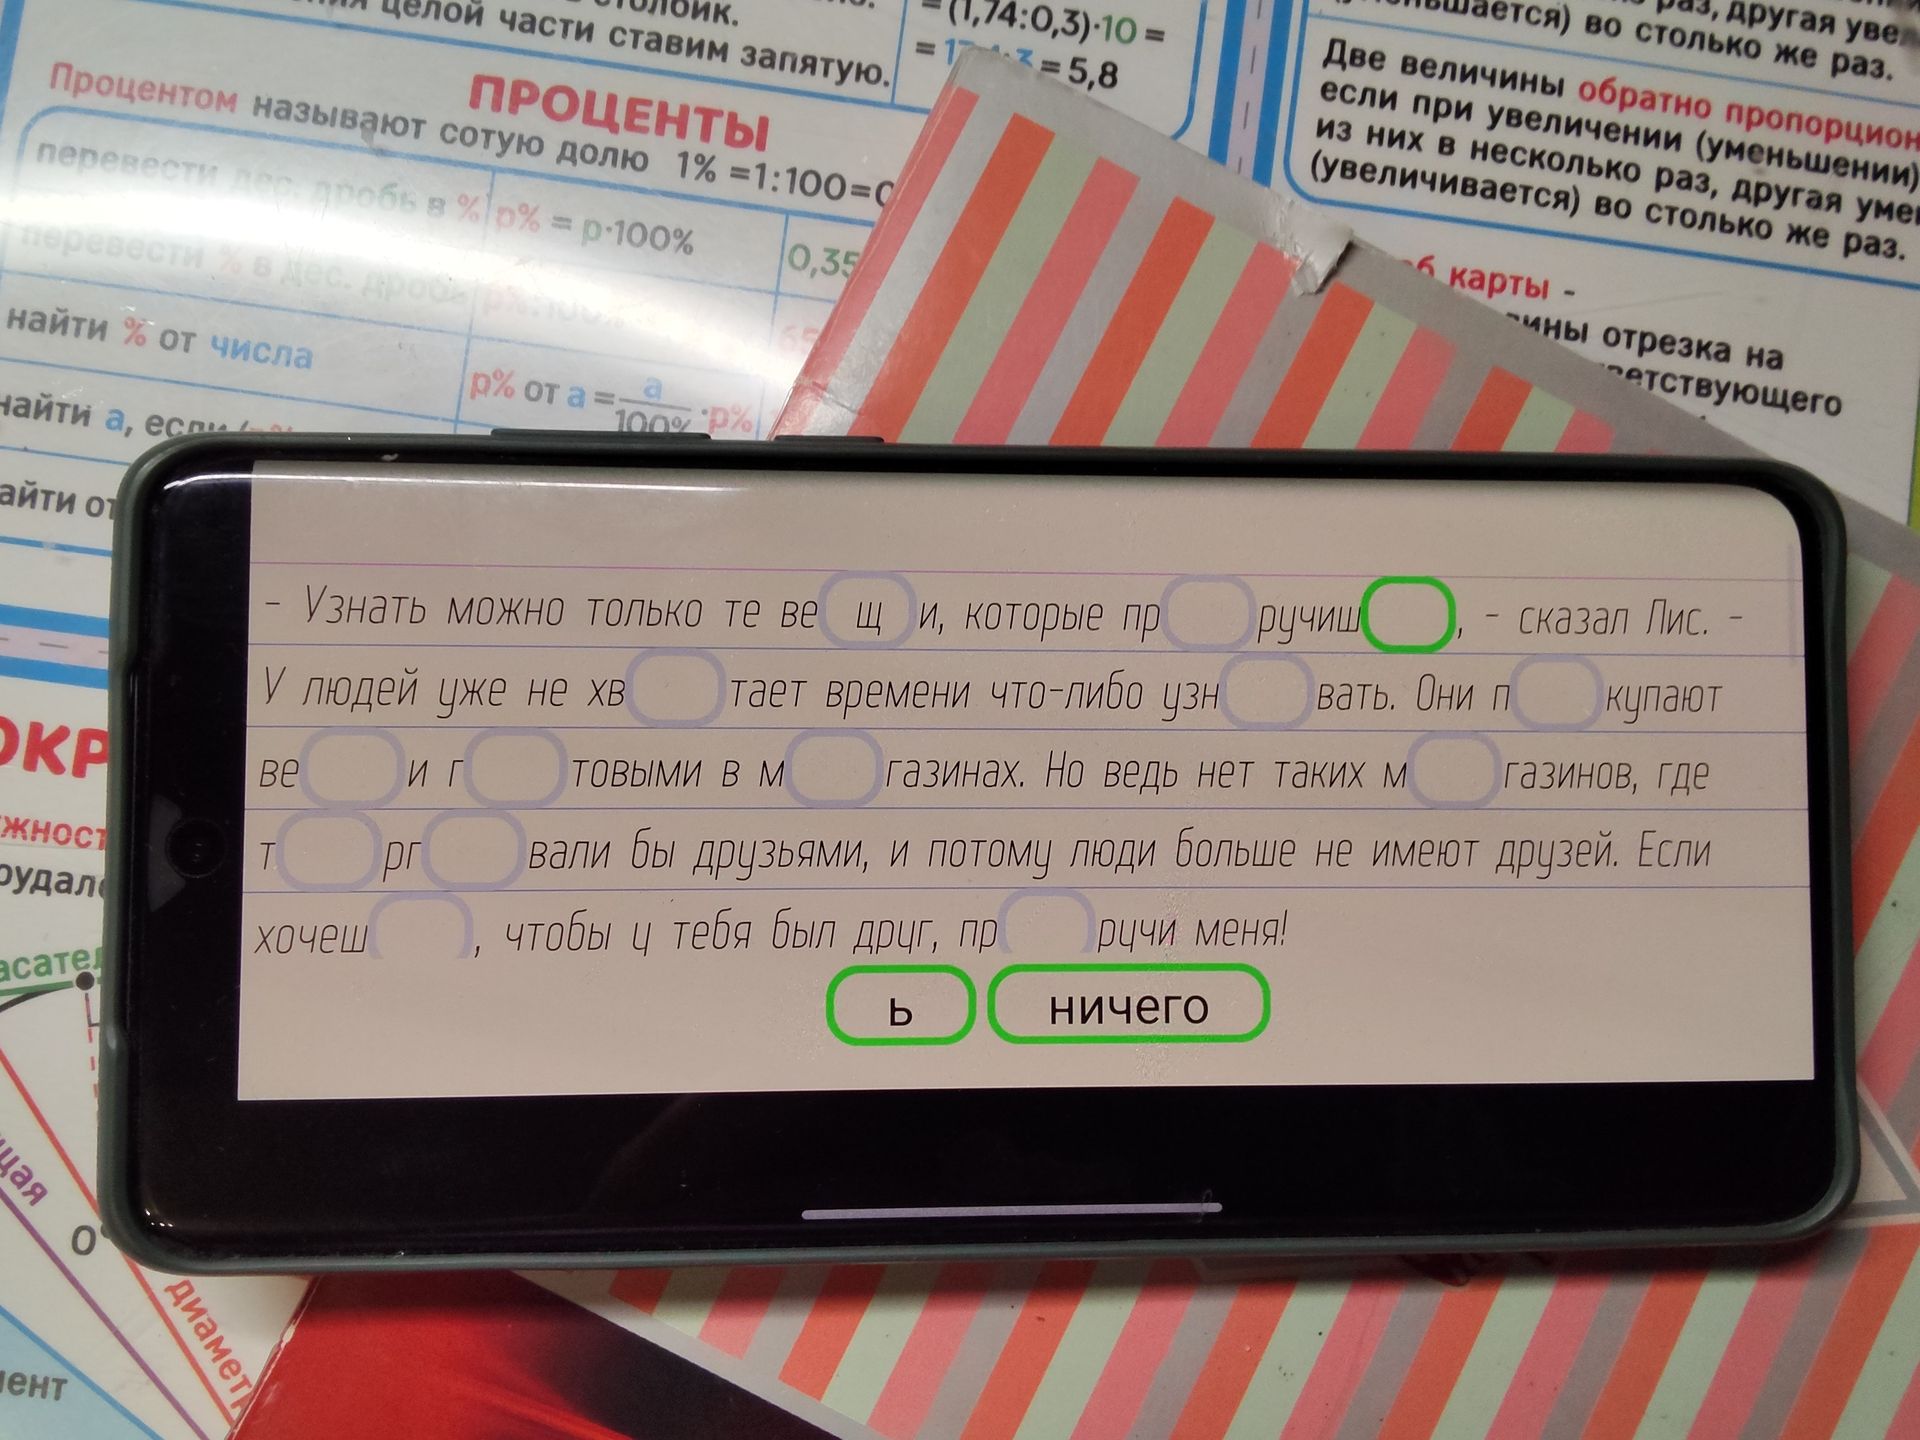 столбик.
целой части ставим запятую.
= (1,74:0,3)·10 =
= 5,8
ПРОЦЕНТЫ
Процентом называют сотую долю 1% =1:100=
перевести дес. дробь в %
p% = p·100%
0,35
перевести % в дес. дробь
p%:100%
65
найти % от числа
p% от a = a/100% ·p%
найти a, если
раз, другая
во столько же раз.
Две величины обратно
если при увеличении (уменьшении)
из них в несколько раз, другая
(увеличивается) во столько же раз.
карты -
отрезка на
- Узнать можно только те ве щ и, которые пр ручиш , - сказал Лис. -
У людей уже не хв тает времени что-либо узн вать. Они п купают
ве и г товыми в м газинах. Но ведь нет таких м газинов, где
т рг вали бы друзьями, и потому люди больше не имеют друзей. Если
хочеш , чтобы у тебя был друг, пр ручи меня!
ь ничего
0°